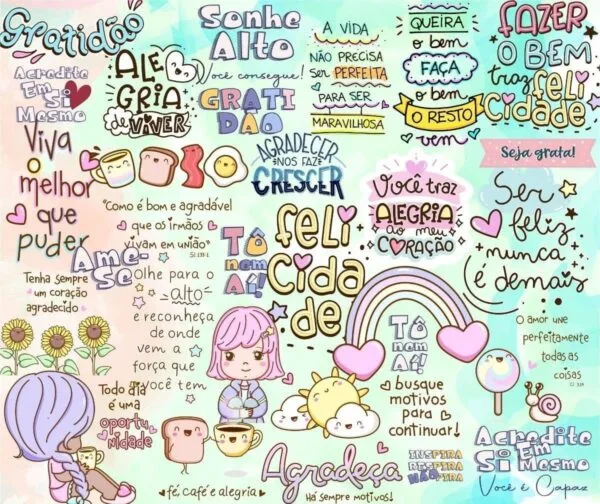 Gratidão
Acredite
Em Si
Mesmo
ALE
GRIA
de VIVER
Sonhe
Alto
Você consegue!
GRATI
DÃO
A VIDA
NÃO PRECISA
Ser PERFEITA
PARA SER
MARAVILHOSA
QUEIRA
o bem
FAÇA
o bem
O RESTO
vem
FAZER
O BEM
traz
FELI
CIDADE
Seja grata!
Viva
o
melhor
que
puder
AGRADECER
NOS FAZ
CRESCER
Você traz
ALEGRIA
ao meu
CORAÇÃO
Ser
feliz
nunca
é demais
"Como é bom e agradável
que os irmãos
vivam em união"
Sl 133:1
Ame-
Se
Tô
nem
Aí!
feli
cida
de
Tenha sempre
um coração
agradecido
Olhe para o
alto
e reconheça
de onde
vem a
força que
você tem
Tô
nem
Aí!
O amor une
perfeitamente
todas as
coisas
busque
motivos
para
continuar!
Todo dia
é uma
oportu
nidade
fé, café e alegria
Agradeça
Há sempre motivos!
INSPIRA
RESPIRA
NÃO PIRA
Acredite
Em
Si Mesmo
Você é Capaz